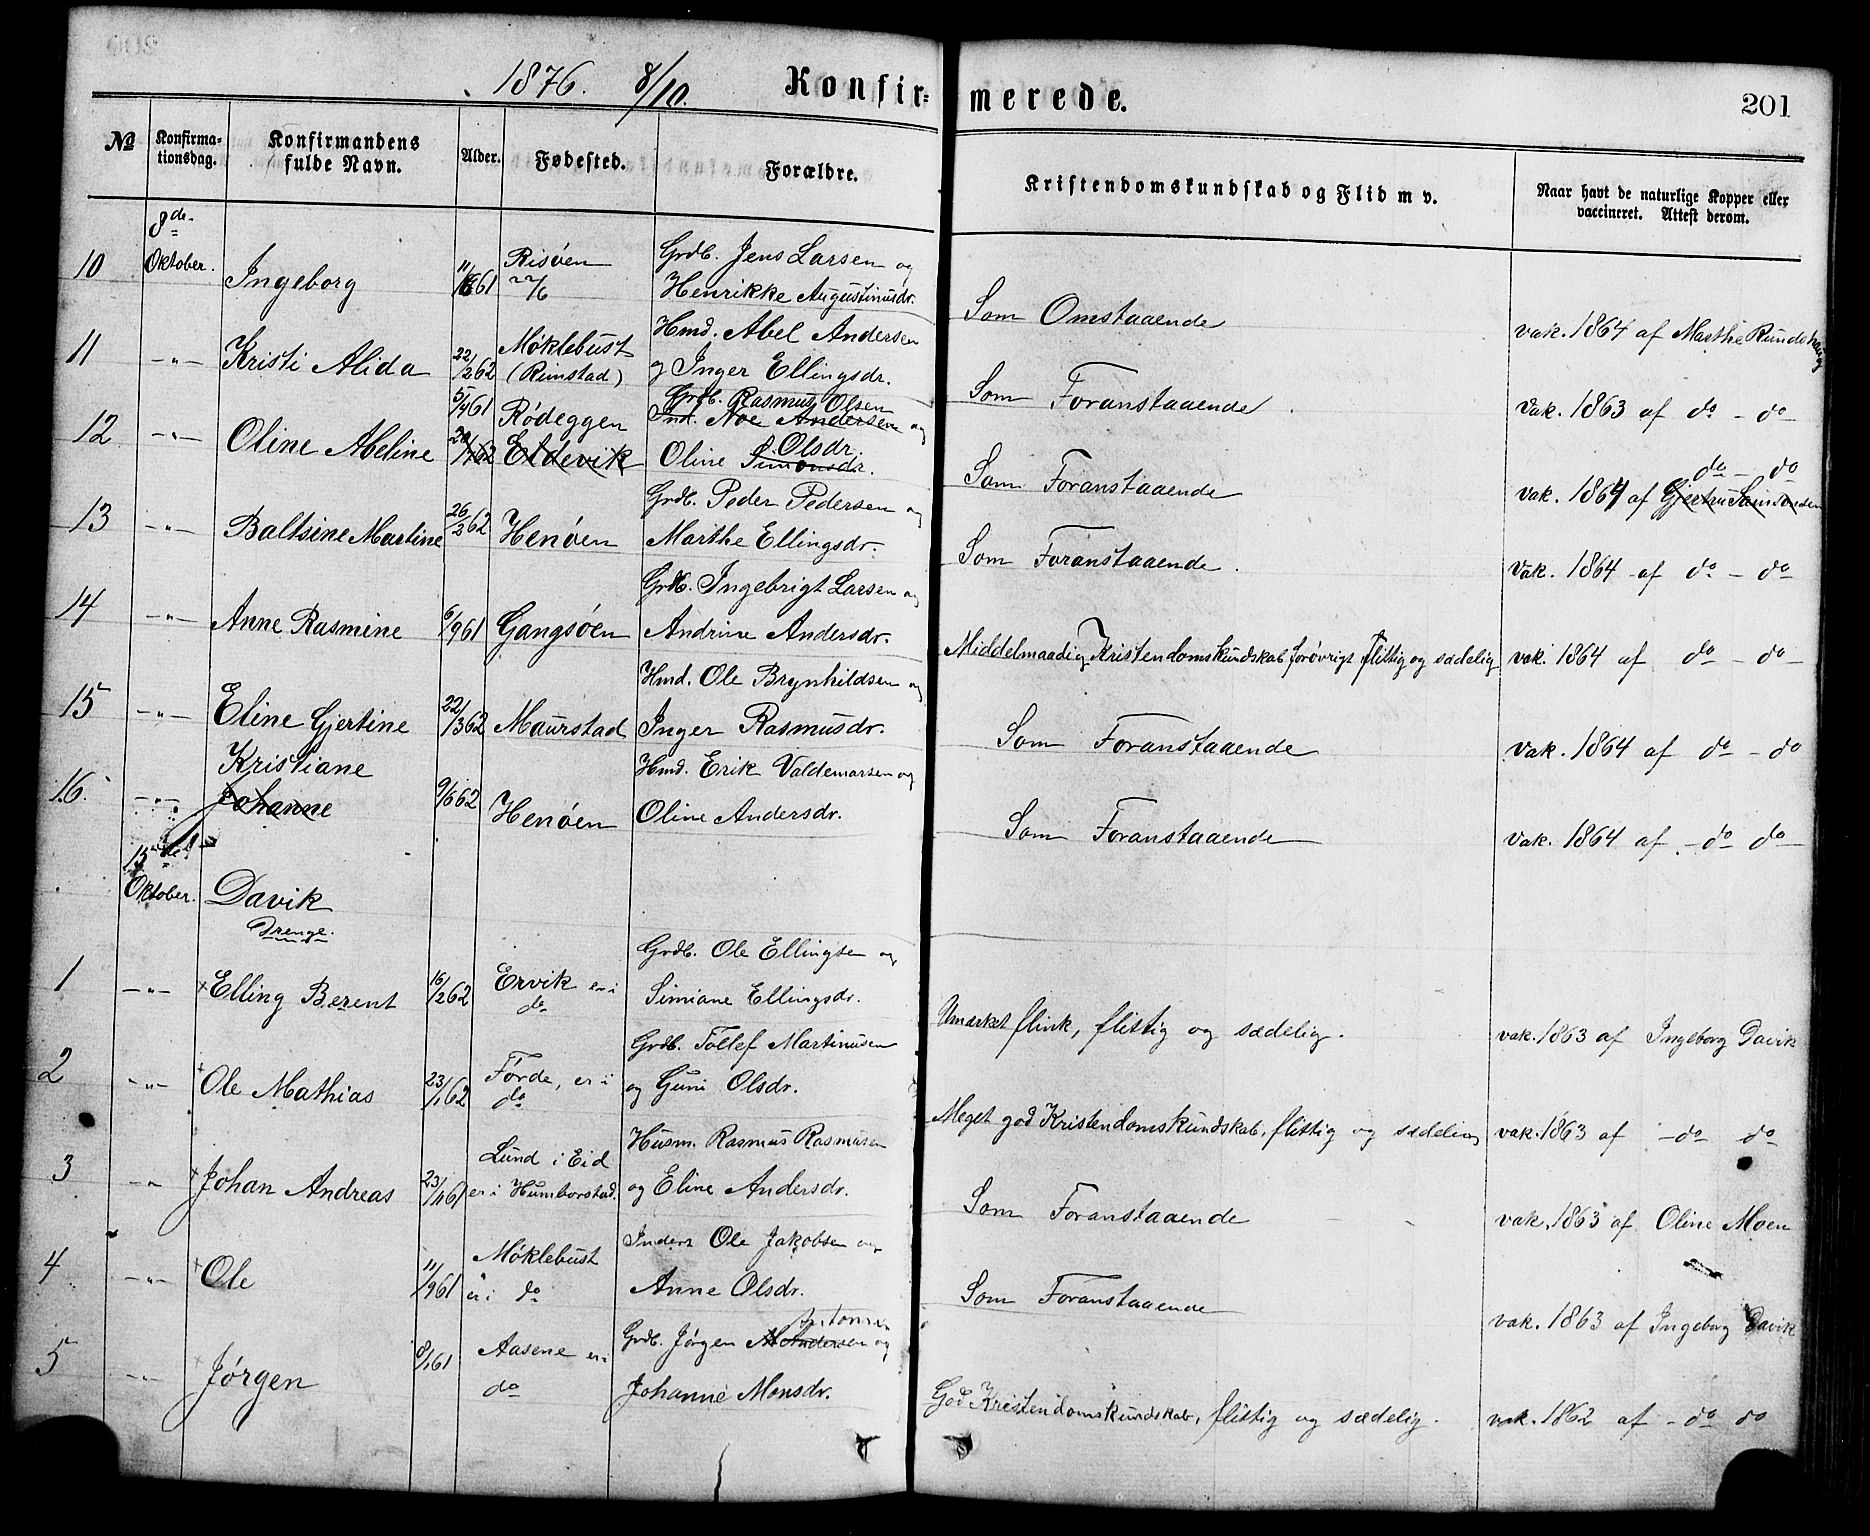 1876. 8/10. Konfir= merede. 201
№ Konfirma-tionsdag. Konfirmandens fulde Navn. Alder. Fødested. Forældre. Kristendomskundskab og Flid m v. Naar havt de naturlige Kopper eller vaccineret. Attest derom.
8de
Oktober.
Grdb. Jens Larsen og
10 Ingeborg 861 Risøen Henrikke Augustinusdr. Som Omstaaende vak. 1864 af Marthe Rundehaug
Hmd. Abel Andersen
11 -"- Kristi Alida 22/2 62 Møklebust (Rimstad) og Inger Ellingsdr. Som Foranstaaende vak. 1863 af do - do
5/4 61 Rødeggen Grdb. Rasmus Olsen
Ind. Noe Andersen og
12 -"- Oline Abeline Eldevik Oline Simonsdr. Olsdr. Som Foranstaaende vak. 1864 af do - do
Grdb. Peder Pedersen og
13 -"- Baltsine Martine 26/2 62 Henøen Marthe Ellingsdr. Som Foranstaaende. Vak. 1864 af do - do
Grdb. Ingebrigt Larsen og
14 -"- Anne Rasmine 6/9 61 Gangsøen Andrine Andersdr. Middelmaadig Kristendomskundskab forøvrigt flittig og sædelig vak. 1864 af do - do
Hmd. Ole Brynhildsen og
15 -"- Eline Gjertine 22/3 62 Maurstad Inger Rasmusdr. Som Foranstaaende vak. 1864 af do - do
Kristiane Hmd. Erik Valdemarsen og
16. -"- Johanne 9/6 62 Henøen Oline Andersdr. Som Foranstaaende vak. 1864 af - do do
15de
Oktober. Davik
Drenge.
Grdb. Ole Ellingsen og
1 -"- Elling Berent 16/2 62 Ervik er i do Simiane Ellingsdr. Umærket flink, flittig og sædelig. vak. 1863 af Ingeborg Davik
Grdb. Tollef Martinusen
2 -"- Ole Mathias 23/1 62 Førde, er i do og Guni Olsdr. Meget god Kristendomskundskab, flittig og sædelig vak. 1863 af - do do
Husm. Rasmus Rasmusen
3 -"- Johan Andreas 23/11 61 Lund i Eid er i Humborstad. og Eline Andersdr. Som Foranstaaende vak. 1863 af Oline Moen
Inderst Ole Jakobsen og
4 -"- Ole 11/9 61 Møklebust er i do Anne Olsdr. Som Foranstaaende vak. 1863 af Ingeborg Davik
Antonsen
Grdb. Jørgen Andersen og
5 -"- Jørgen 8/1 61 Aasene er i do Johanne Monsdr. God Kristendomskundskab, flittig og sædelig. vak. 1862 af - do do